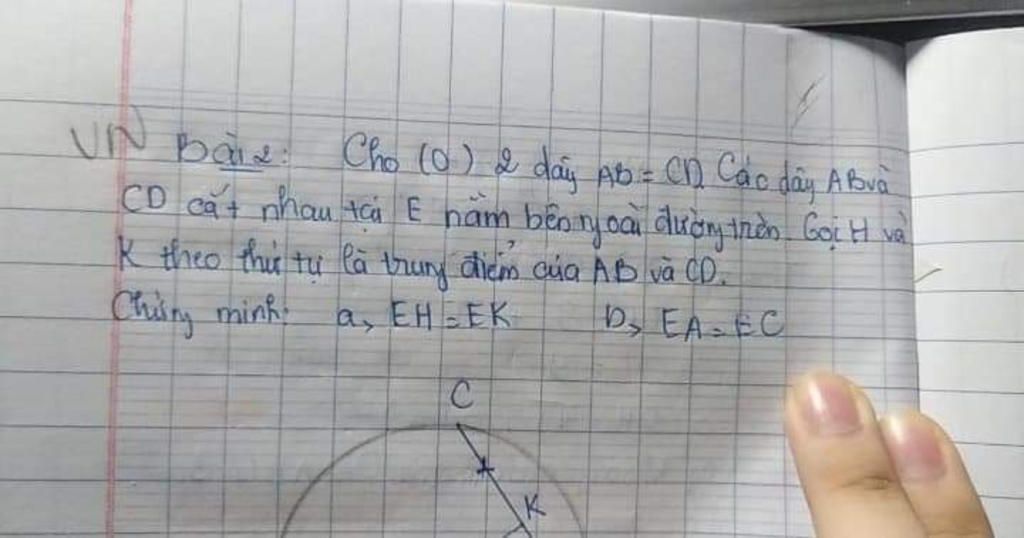 VN Bài 2: Cho (O) 2 dây AB = CD Các dây AB và
CD cắt nhau tại E nằm bên ngoài đường tròn. Gọi H và
K theo thứ tự là trung điểm của AB và CD.
Chứng minh: a, EH = EK b, EA = EC
C
K